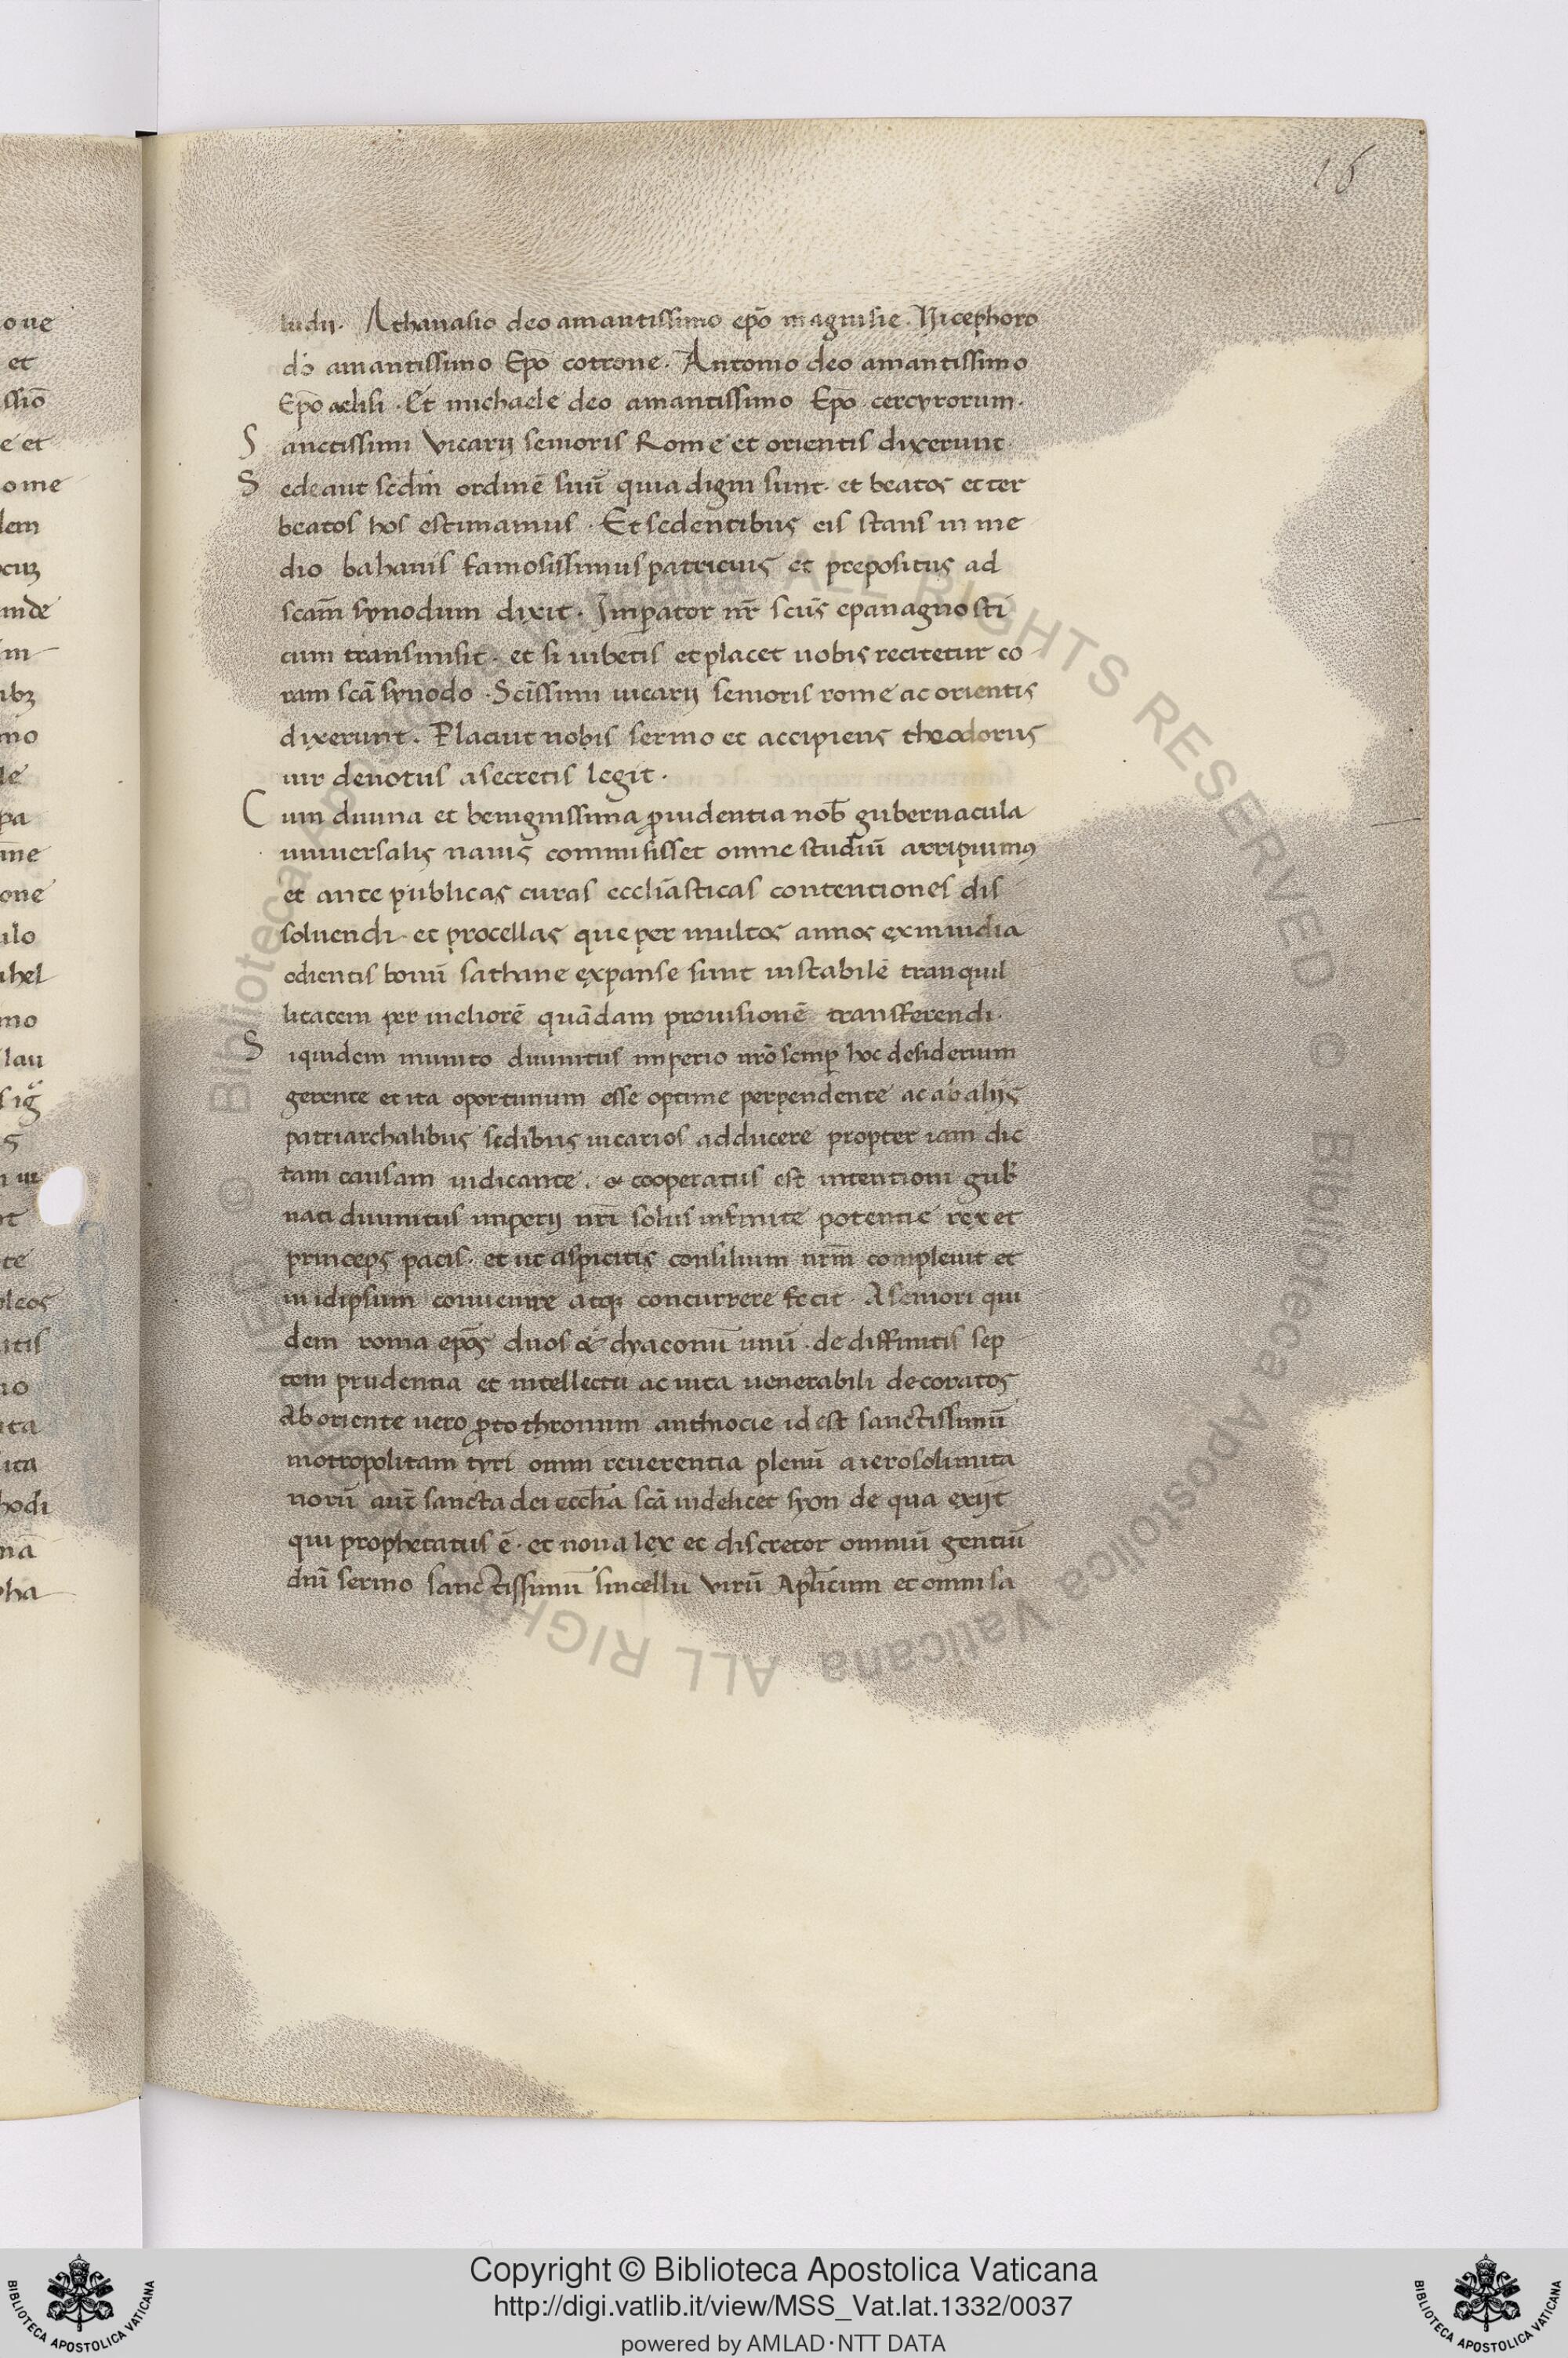 one
et
ssiō᷎
e et
ome
lem
cuȝ
unde
in
ibȝ
mo
le
pa
ime
one
ulo
uhel
mo
lau
sig̃
te
pleos
utis
no
uta
ita
hodi
nā
pha
16
ludii. Athanasio deo amantissimo ep̄o magnisie. Nicephoro
dō amantissimo Ep̄o cotrone. Antonio deo amantissimo
Ep̄o aelisi. Et michaele deo amantissimo Ep̄o cercyrorum.
Sanctissimi Vicarij senioris Rome et orientis dixerunt.
Sedeant sc̄dm̄ ordinē suū quia digni sunt. et beatos et ter
beatos hos estimamus. Et sedentibus eis stans in me
dio bahanis famosissimus patricius et prepositus ad
scām synodum dixit. Imperator nr̄ scūs epanagnosti
cum transmisit. et si iubetis et placet uobis recitetur co
ram scā synodo. Scīssimi uicarij senioris rome ac orientis
dixerunt. Placuit nobis sermo et accipiens theodorus
uir deuotus a secretis legit.
Cum diuina et benignissima ꝓuidentia nob̄ gubernacula
uniuersalis nauis commisisset omne studiū arripuimꝰ
et ante publicas curas eccliāsticas contentiones dis
soluendi. et procellas que per multos annos ex inuidia
odientis bonū sathane expanse sunt instabilē tranquil
litatem per meliorē quādam prouisionē transferendi.
Siquidem munito diuinitus imperio nrō semꝑ hoc desiderium
gerente et ita oportunum esse optime perpendente ac ab alijs
patriarchalibus sedibus uicarios adducere propter iam dic
tam causam iudicante. & cooperatus est intentioni gub̄
nati diuinitus imperij nrī solus infinite potentie rex et
princeps pacis. et ut aspicitis consilium nrm̄ compleuit et
in idipsum conuenire atqꝫ concurrere fecit. A seniori qui
dem roma epōs duos & dyaconū unū. de diffinitis sep
tem prudentia et intellectu ac uita uenerabili decoratos
Ab oriente uero ꝓtothronum anthiocie id est sanctissimū
motropolitam tyri omni reuerentia plenū a ierosolimita
norū aut̄ sancta dei ecclīa scā uidelicet syon de qua exijt
qui prophetatus ē. et noua lex et discretor omniū gentiū
dn̄i sermo sanctissimū sincellū virū Aplīcum et omni sa
© Biblioteca Apostolica Vaticana ALL RIGHTS RESERVED © Biblioteca Apostolica Vaticana ALL RIGHTS RESERVED
Copyright © Biblioteca Apostolica Vaticana
http://digi.vatlib.it/view/MSS_Vat.lat.1332/0037
powered by AMLAD·NTT DATA
BIBLIOTECA APOSTOLICA VATICANA
BIBLIOTECA APOSTOLICA VATICANA